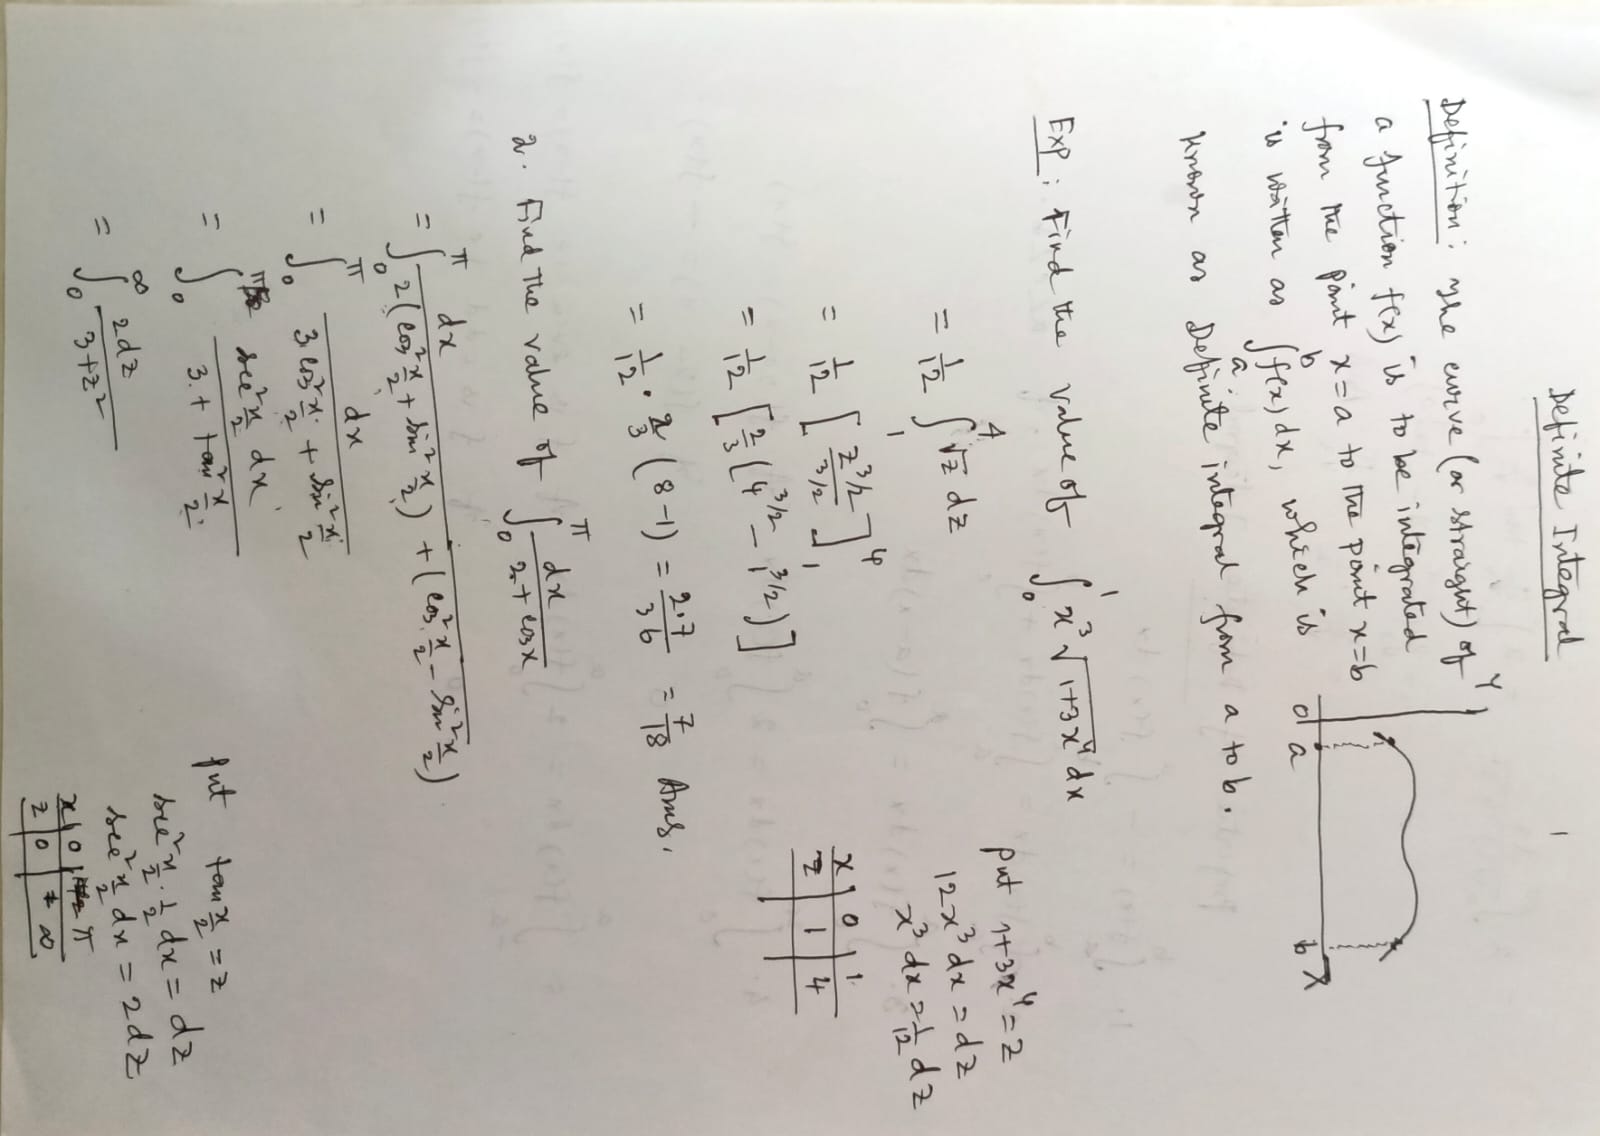 1
Definite Integral
Definition: The curve (or straight) of
a function f(x) is to be integrated
from the point x=a to the point x=b
is written as ∫_a^b f(x) dx, which is
known as Definite integral from a to b.
Y
O a b X
Exp: Find the value of ∫_0^1 x³ √(1+3x⁴) dx
put 1+3x⁴ = z
12x³ dx = dz
x³ dx = 1/12 dz
x | 0 | 1
z | 1 | 4
= 1/12 ∫_1^4 √z dz
= 1/12 [ z^{3/2} / 3/2 ]_1^4
= 1/12 [ 2/3 ( 4^{3/2} - 1^{3/2} ) ]
= 1/12 · 2/3 (8-1) = 2·7/36 = 7/18 Ans.
2. Find the value of ∫_0^π dx / 2+cosx
= ∫_0^π dx / 2(cos² x/2 + sin² x/2) + (cos² x/2 - sin² x/2)
= ∫_0^π dx / 3cos² x/2 + sin² x/2
= ∫_0^π sec² x/2 dx / 3 + tan² x/2
= ∫_0^∞ 2dz / 3+z²
put tan x/2 = z
sec² x/2 · 1/2 dx = dz
sec² x/2 dx = 2dz
x | 0 | π
z | 0 | ∞